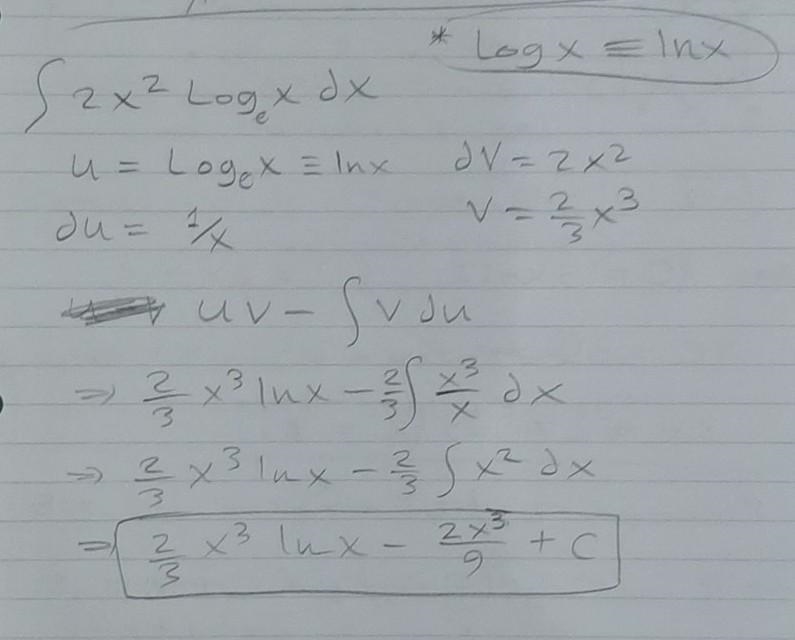 * Log x ≡ ln x
∫ 2x² Logₑx dx
u = Logₑx ≡ lnx dV = 2x²
du = 1/x V = 2/3 x³
uv - ∫ v du
⇒ 2/3 x³ ln x - 2/3 ∫ x³/x dx
⇒ 2/3 x³ ln x - 2/3 ∫ x² dx
⇒ 2/3 x³ ln x - 2x³/9 + C